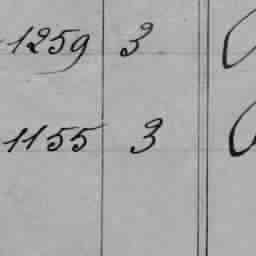 1259 3
1155 3